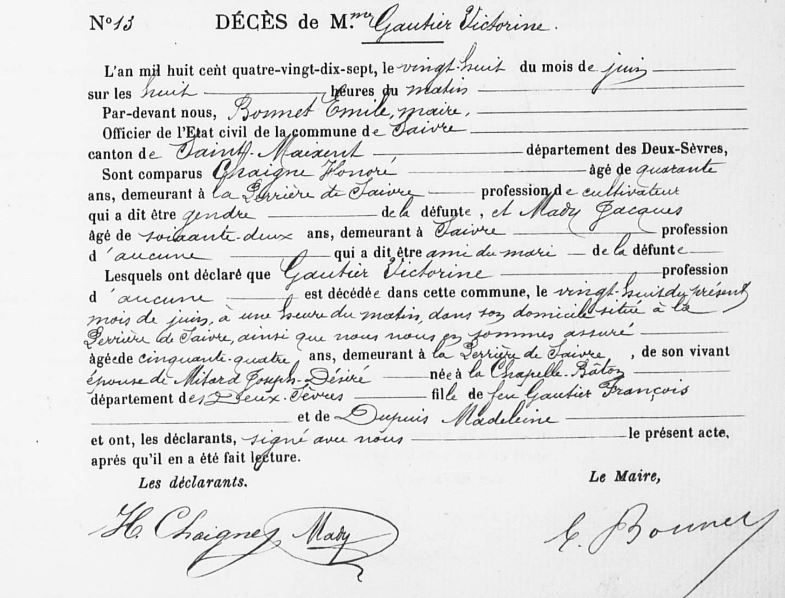 No 13 DÉCÈS de M.me Gautier Victorine.
L'an mil huit cent quatre-vingt-dix-sept, le vingt-huit du mois de juin
sur les huit heures du matin
Par-devant nous, Bonnet Emile, maire,
Officier de l'Etat civil de la commune de Saivre
canton de Saint-Maixent département des Deux-Sèvres,
Sont comparus Chaigne Honoré âgé de quarante
ans, demeurant à la Perrière de Saivre profession de cultivateur
qui a dit être gendre de la défunte, et Mady Jacques
âgé de soixante-deux ans, demeurant à Saivre profession
d'aucune qui a dit être ami du mari de la défunte
Lesquels ont déclaré que Gautier Victorine profession
d'aucune est décédée dans cette commune, le vingt-huit du présent
mois de juin, à une heure du matin, dans son domicile situé à la
Perrière de Saivre, ainsi que nous nous en sommes assuré
âgée de cinquante-quatre ans, demeurant à la Perrière de Saivre, de son vivant
épouse de Mitard Joseph-Désiré née à la Chapelle-Bâton
département des Deux-Sèvres fille de feu Gautier François
et de Dupuis Madeleine
et ont, les déclarants, signé avec nous le présent acte,
après qu'il en a été fait lecture.
Les déclarants. Le Maire,
H. Chaigne Mady E. Bonnet